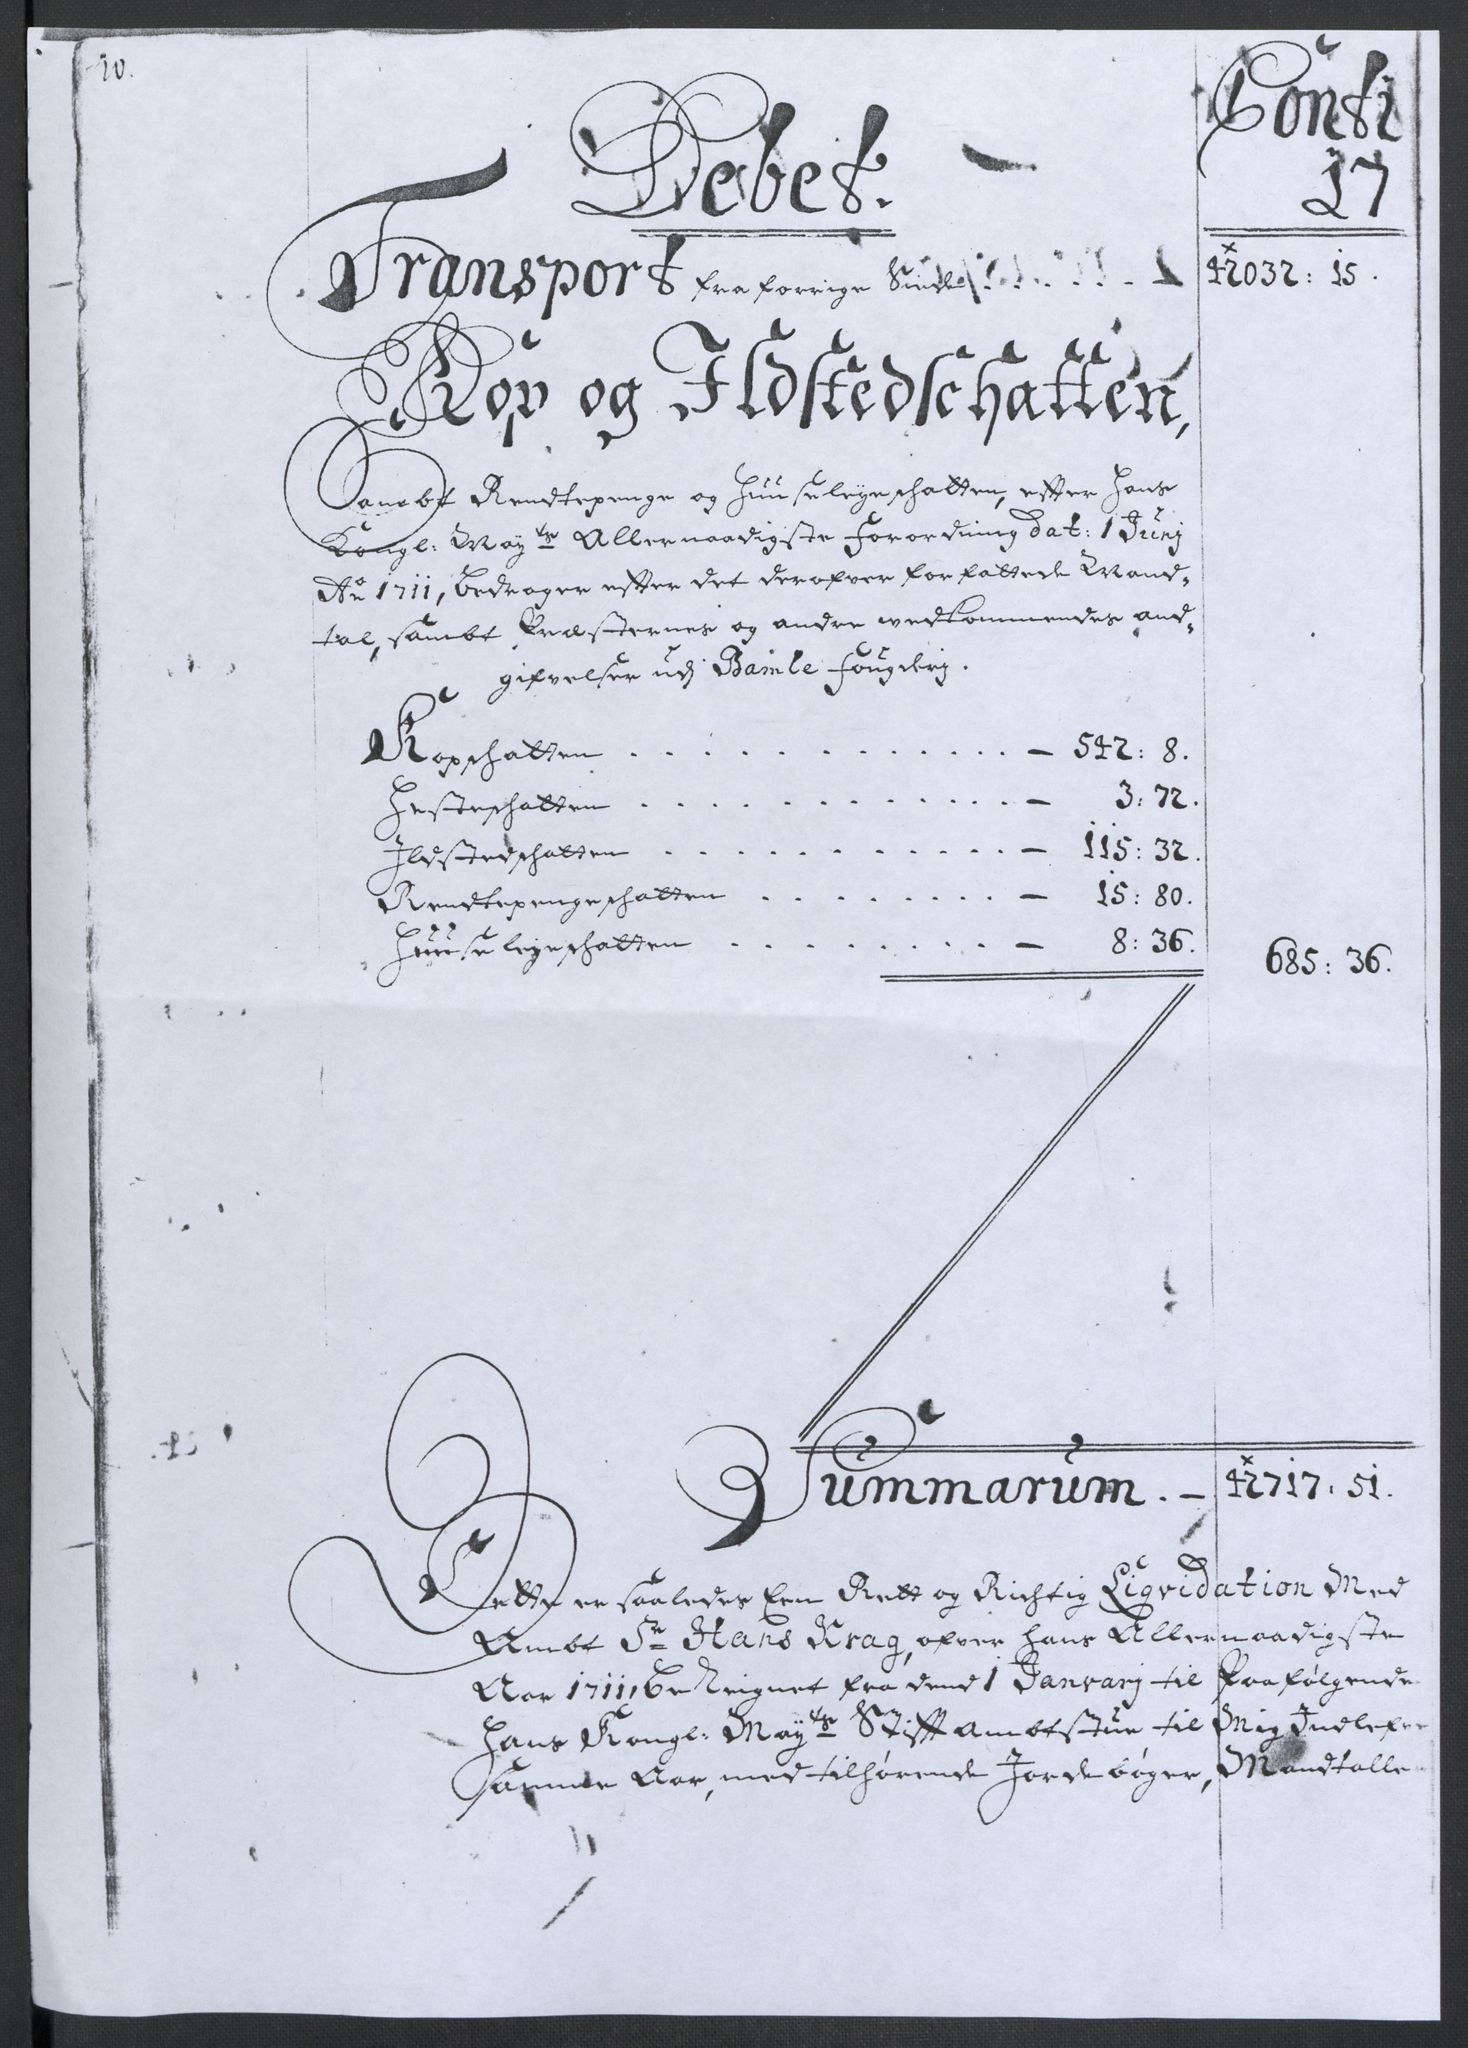 10.
Conti
17
Debet.
Transport fra forrige Siide 42032: 15.
Kop og Ildstedschatten,
Sambt Rendtepenge og Huuseleyeschatten, efter Hans
Kongl: Mayts Allernaadigste Forordning dat: 1 Junj
Ao 1711, bedrager efter det derofver forfattede Mand-
tal, sambt Præsternes og andre vedkommendes and-
gifvelser udj Bamle fougderj.
Kopschatten . . . . . . . . . . . . . — 542: 8.
Hesteschatten . . . . . . . . . . . . . — 3: 72.
Ildstedschatten . . . . . . . . . . . . — 115: 32.
Rendtepengeschatten . . . . . . . . — 15: 80.
Huuseleyeschatten . . . . . . . . . — 8: 36. 685: 36.
Summarum. — 42717: 51.
Dette er saaledes Een Rett og Richtig Liqvidation Med
Ambt Sr Hans Krag, ofver hans Allernaadigste
Aar 1711, beReignet fra dend 1 Janvarj til Paafølgende
Hans Kongl: Mayts Stifft ambtstue til Mig Indlefve
samme Aar, med tilhørende Jordebøger, Mandtalle